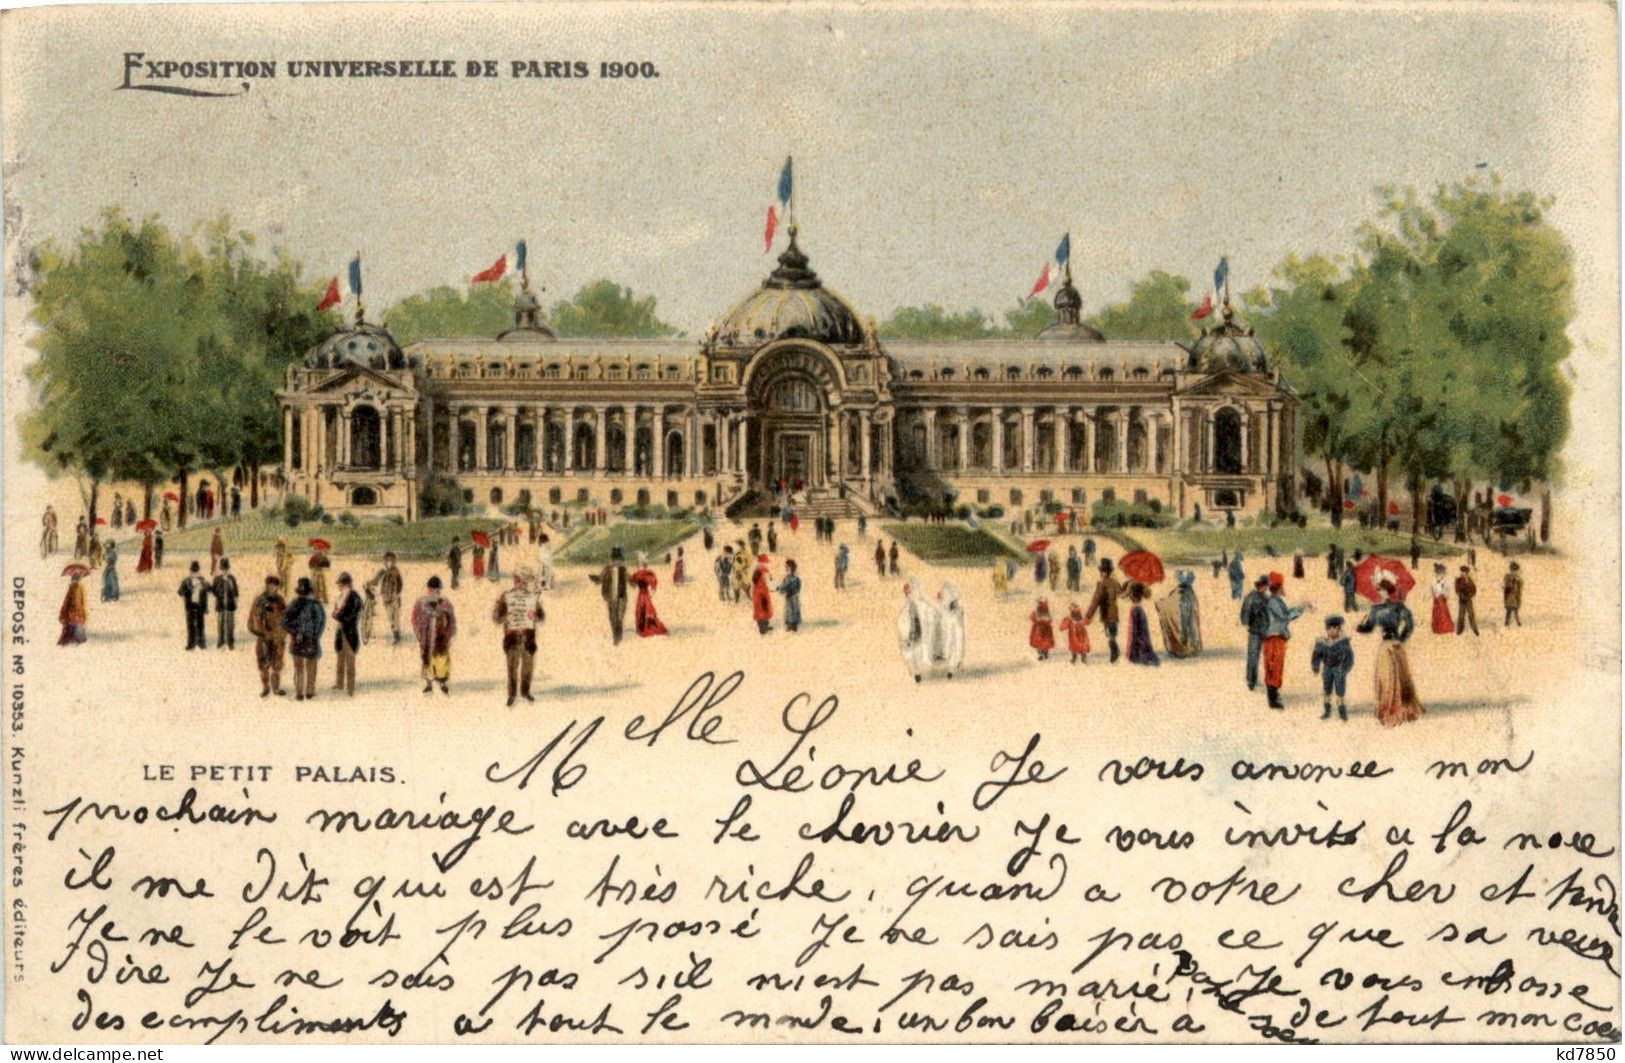 EXPOSITION UNIVERSELLE DE PARIS 1900.
DEPOSÉ No 10353. Kunzli frères éditeurs
LE PETIT PALAIS.
Melle Léonie Je vous anonce mon
prochain mariage avec le chevrier Je vous invite a la noce
il me dit qui est très riche, quand a votre cher et tendre
Je ne le voit plus passé Je ne sais pas ce que sa veux
dire Je ne sais pas s'il n'est pas marié, Je vous embrasse
des compliments a tout le monde, un bon baisér a de tout mon coeur
www.delcampe.net
kd7850